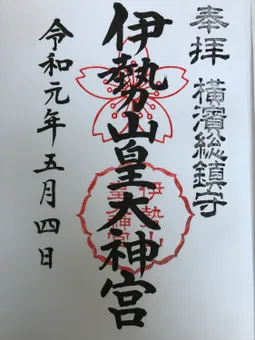 奉拝 横濱総鎮守
伊勢山皇大神宮
令和元年五月四日
伊勢山皇大神宮